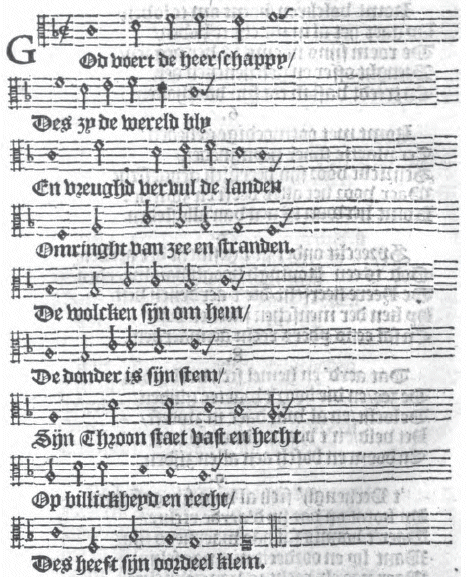 GOd voert de heerschappy/
Des zy de wereld bly
En vreughd vervul de landen
Omringht van zee en stranden.
De wolcken sijn om hem/
De donder is sijn stem/
Sijn Throon staet vast en hecht
Op billickheyd en recht/
Des heeft sijn oordeel klem.